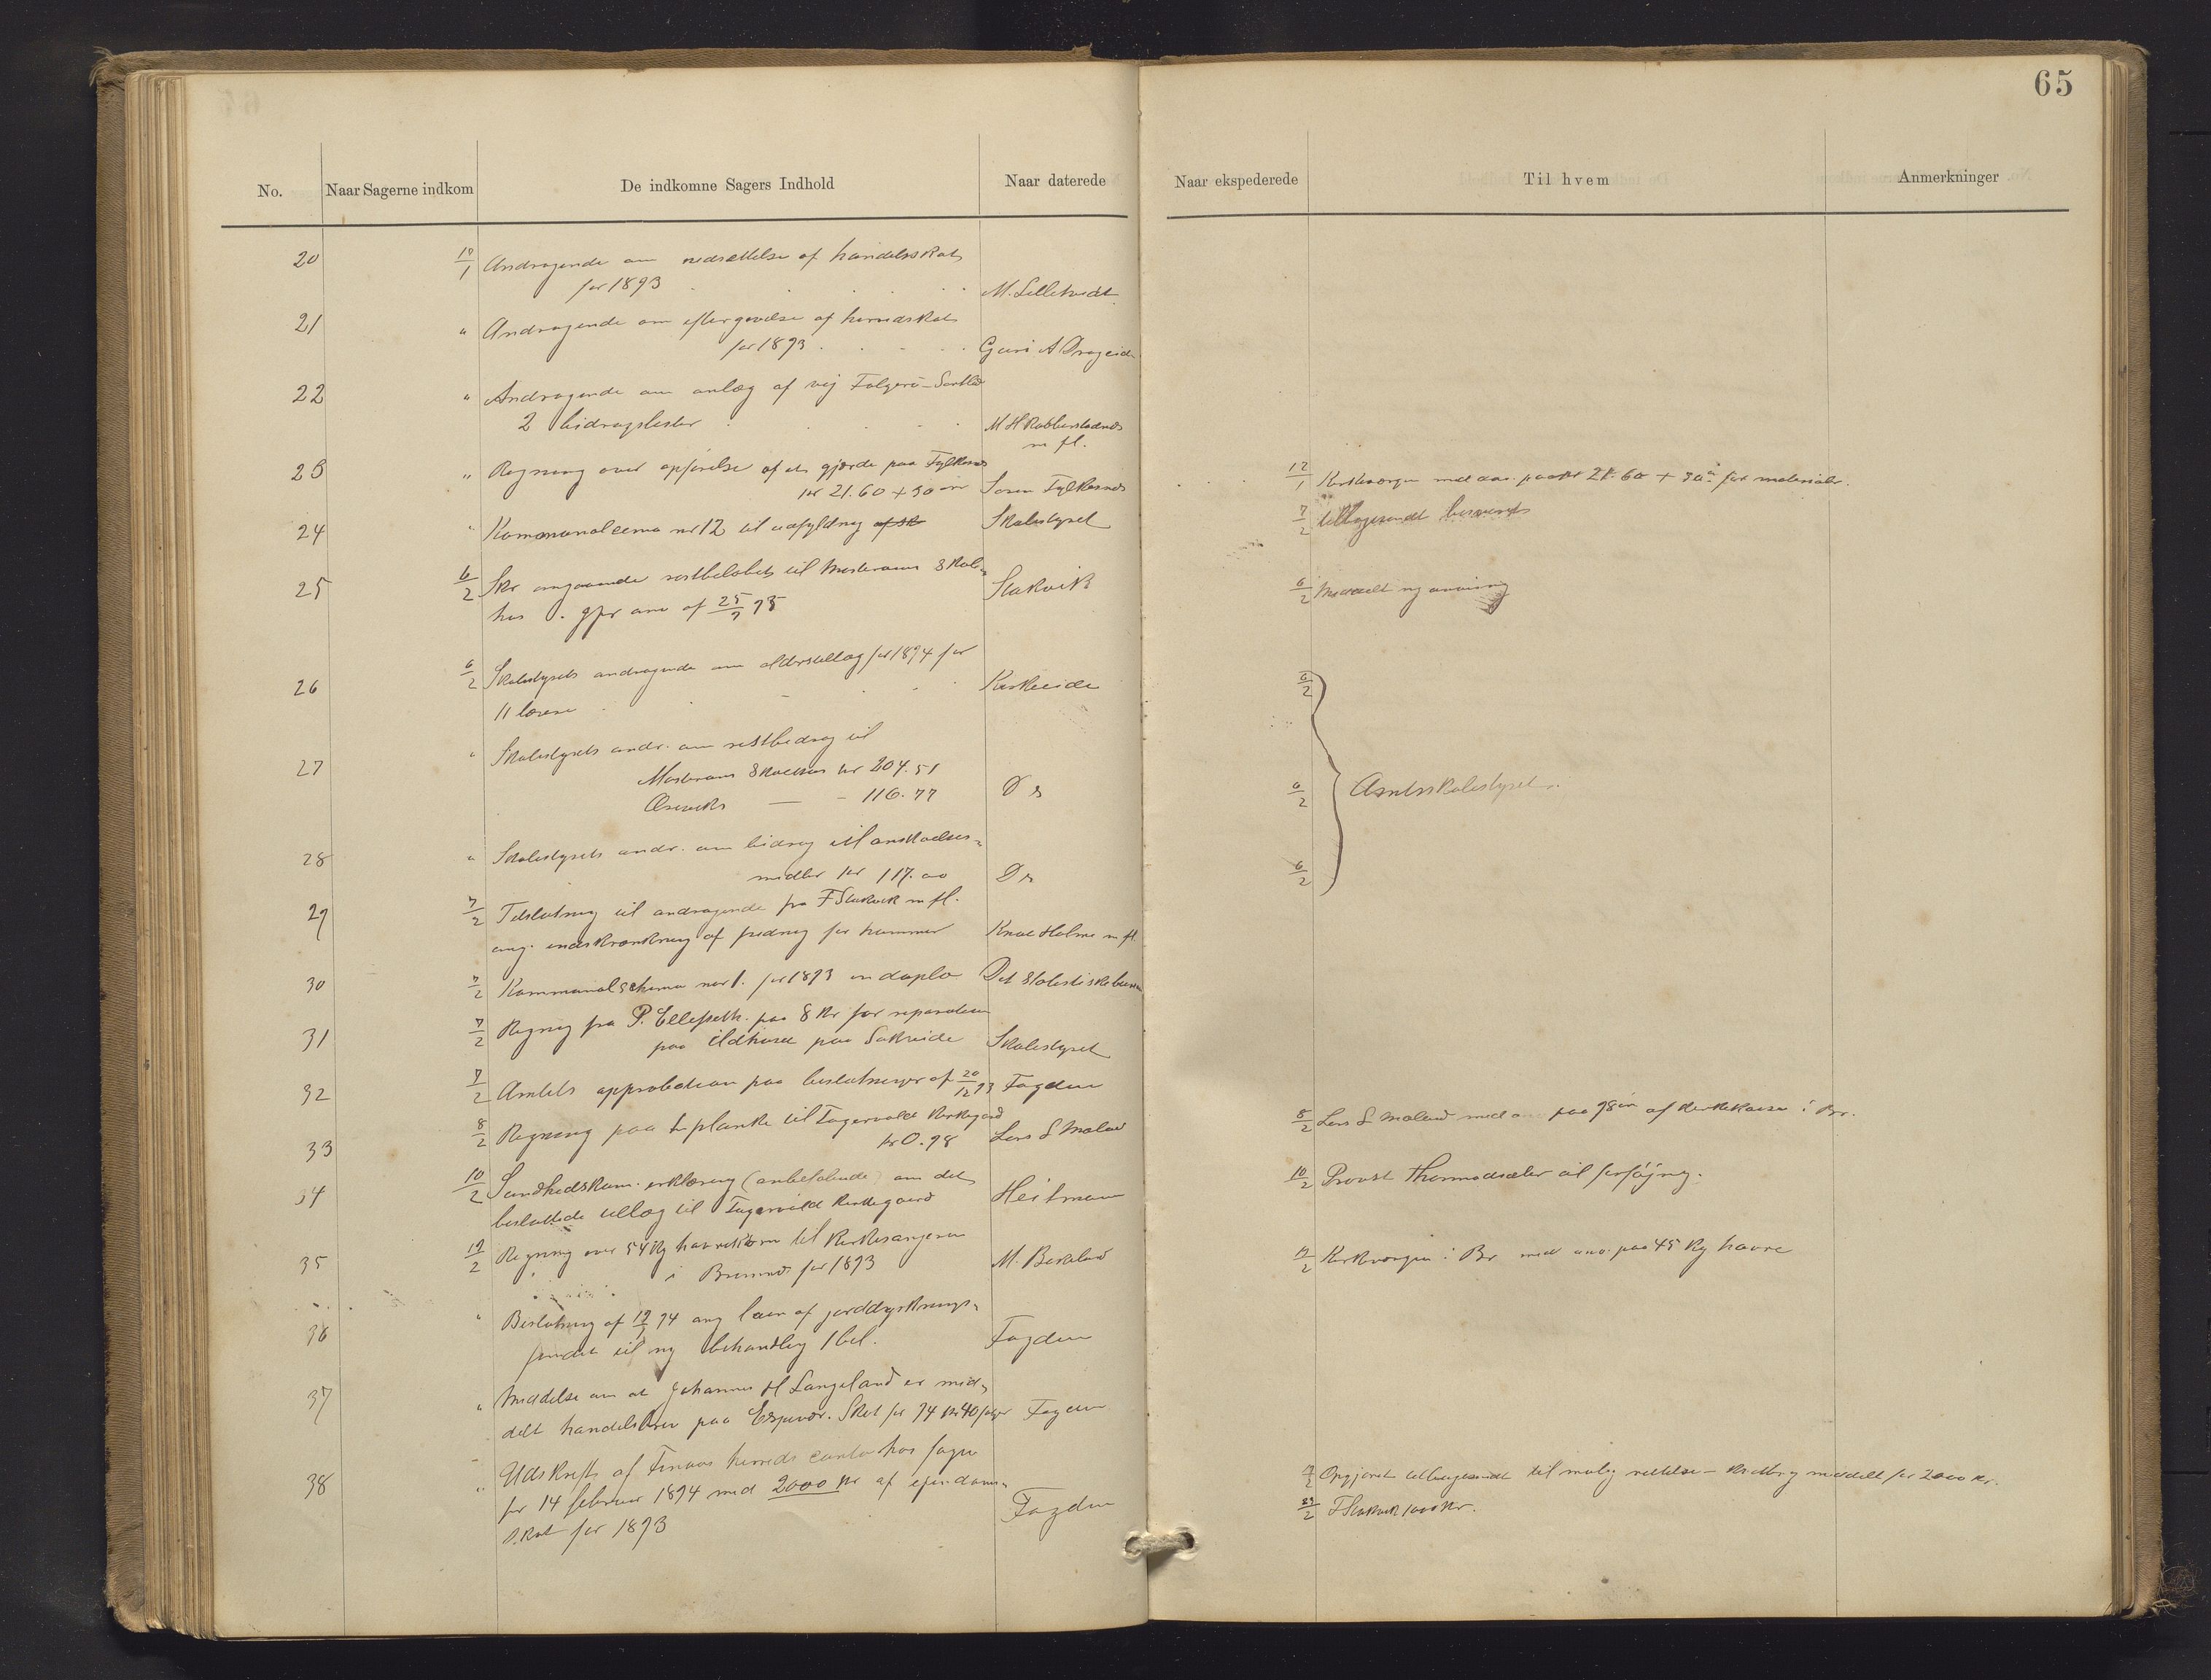 65
No. Naar Sagerne indkom De indkomne Sagers Indhold Naar daterede Naar ekspederede Til hvem Anmerkninger
20 10/1 Andragende om nedsættelse af handelsskat
for 1893 M. Lillehvidt
21 " Andragende om eftergivelse af herredskat
for 1893 Guri A Drageide
22 " Andragende om anlæg af vej
2 bidragslister M H Robberstadnes
m fl.
23 " Regning over opførelse af et gjærde paa Fylkesnes
kr 21.60 + 30 øre Søren Fylkesnes 12/1 Kirkeværgen med anv. paa kr 21.60 + 30 ø for materialer.
24 " Kommunalschema nr 12 til udfyldning Skolestyret 7/2 tilbagesendt besvaret
25 6/2 Skr angaaende restbeløbet til Mosterøens Skole
hus . gfr anv af 25/9 93 Stokvik 6/2 Meddelt ny anvisning
26 6/2 Skolestyrets andragende om alderstillæg for 1894 for
11 lærere Kirkeeide 6/2
27 " Skolestyrets andr. om restbidrag til
Mosterøens Skolehus kr 204.51
— - 116.77 Do 6/2 Amtsskolestyret.
28 " Skolestyrets andr. om bidrag til anskaffelses
midler kr 117.00 Do 6/2
29 7/2 Tilslutning til andragende fra F Stokvik m fl.
ang. indskrænkning af fredning for hummer Knut Holme m fl.
30 7/2 Kommunalschema nr 1. for 1893 in duplo Det statistiske bureau
31 7/2 Regning fra P. Ellefseth. paa 8 kr for reparation
paa ildhuset paa Sakseide Skolestyret
32 7/2 Amtets approbation paa beslutninger af 20/12 93 Fogden
33 8/2 Regning paa 1 planke til Fagervold Kirkegaard
kr 0.98 Lars S Moland 8/2 Lars S Moland med paa 98 øre af kirkekassen i Br.
34 10/2 Sundhedskom. erklæring (anbefalende) om det
besluttede tillæg til Fagervold Kirkegaard Heitmann 10/2 Provst Thormodsæter til forføjning.
35 12/2 Regning over 54 kg havrekorn til kirkesangeren
i Bremnes for 1893 M. Bekeland 12/2 Kirkeværgen i Br med anv. paa 45 kg havre
36 " Beslutning af 12/1 94 ang laan af jorddyrknings
fondet til ny behandling 1 bil. Fogden
37 " Meddelse om at Johannes H Langeland er med
delt handelsbrev paa Espevær. Skat for 94 kr 40 Fogden
38 " Udskrift af Finnaas herreds conto hos fogden
for 14 februar 1894 med 2000 kr af ejendoms
skat for 1893 Fogden Opgjøret tilbagesendt til mulig rettelse – kvittering meddelt for 2000 kr.
23/2 F Stokvik 1000 kr.